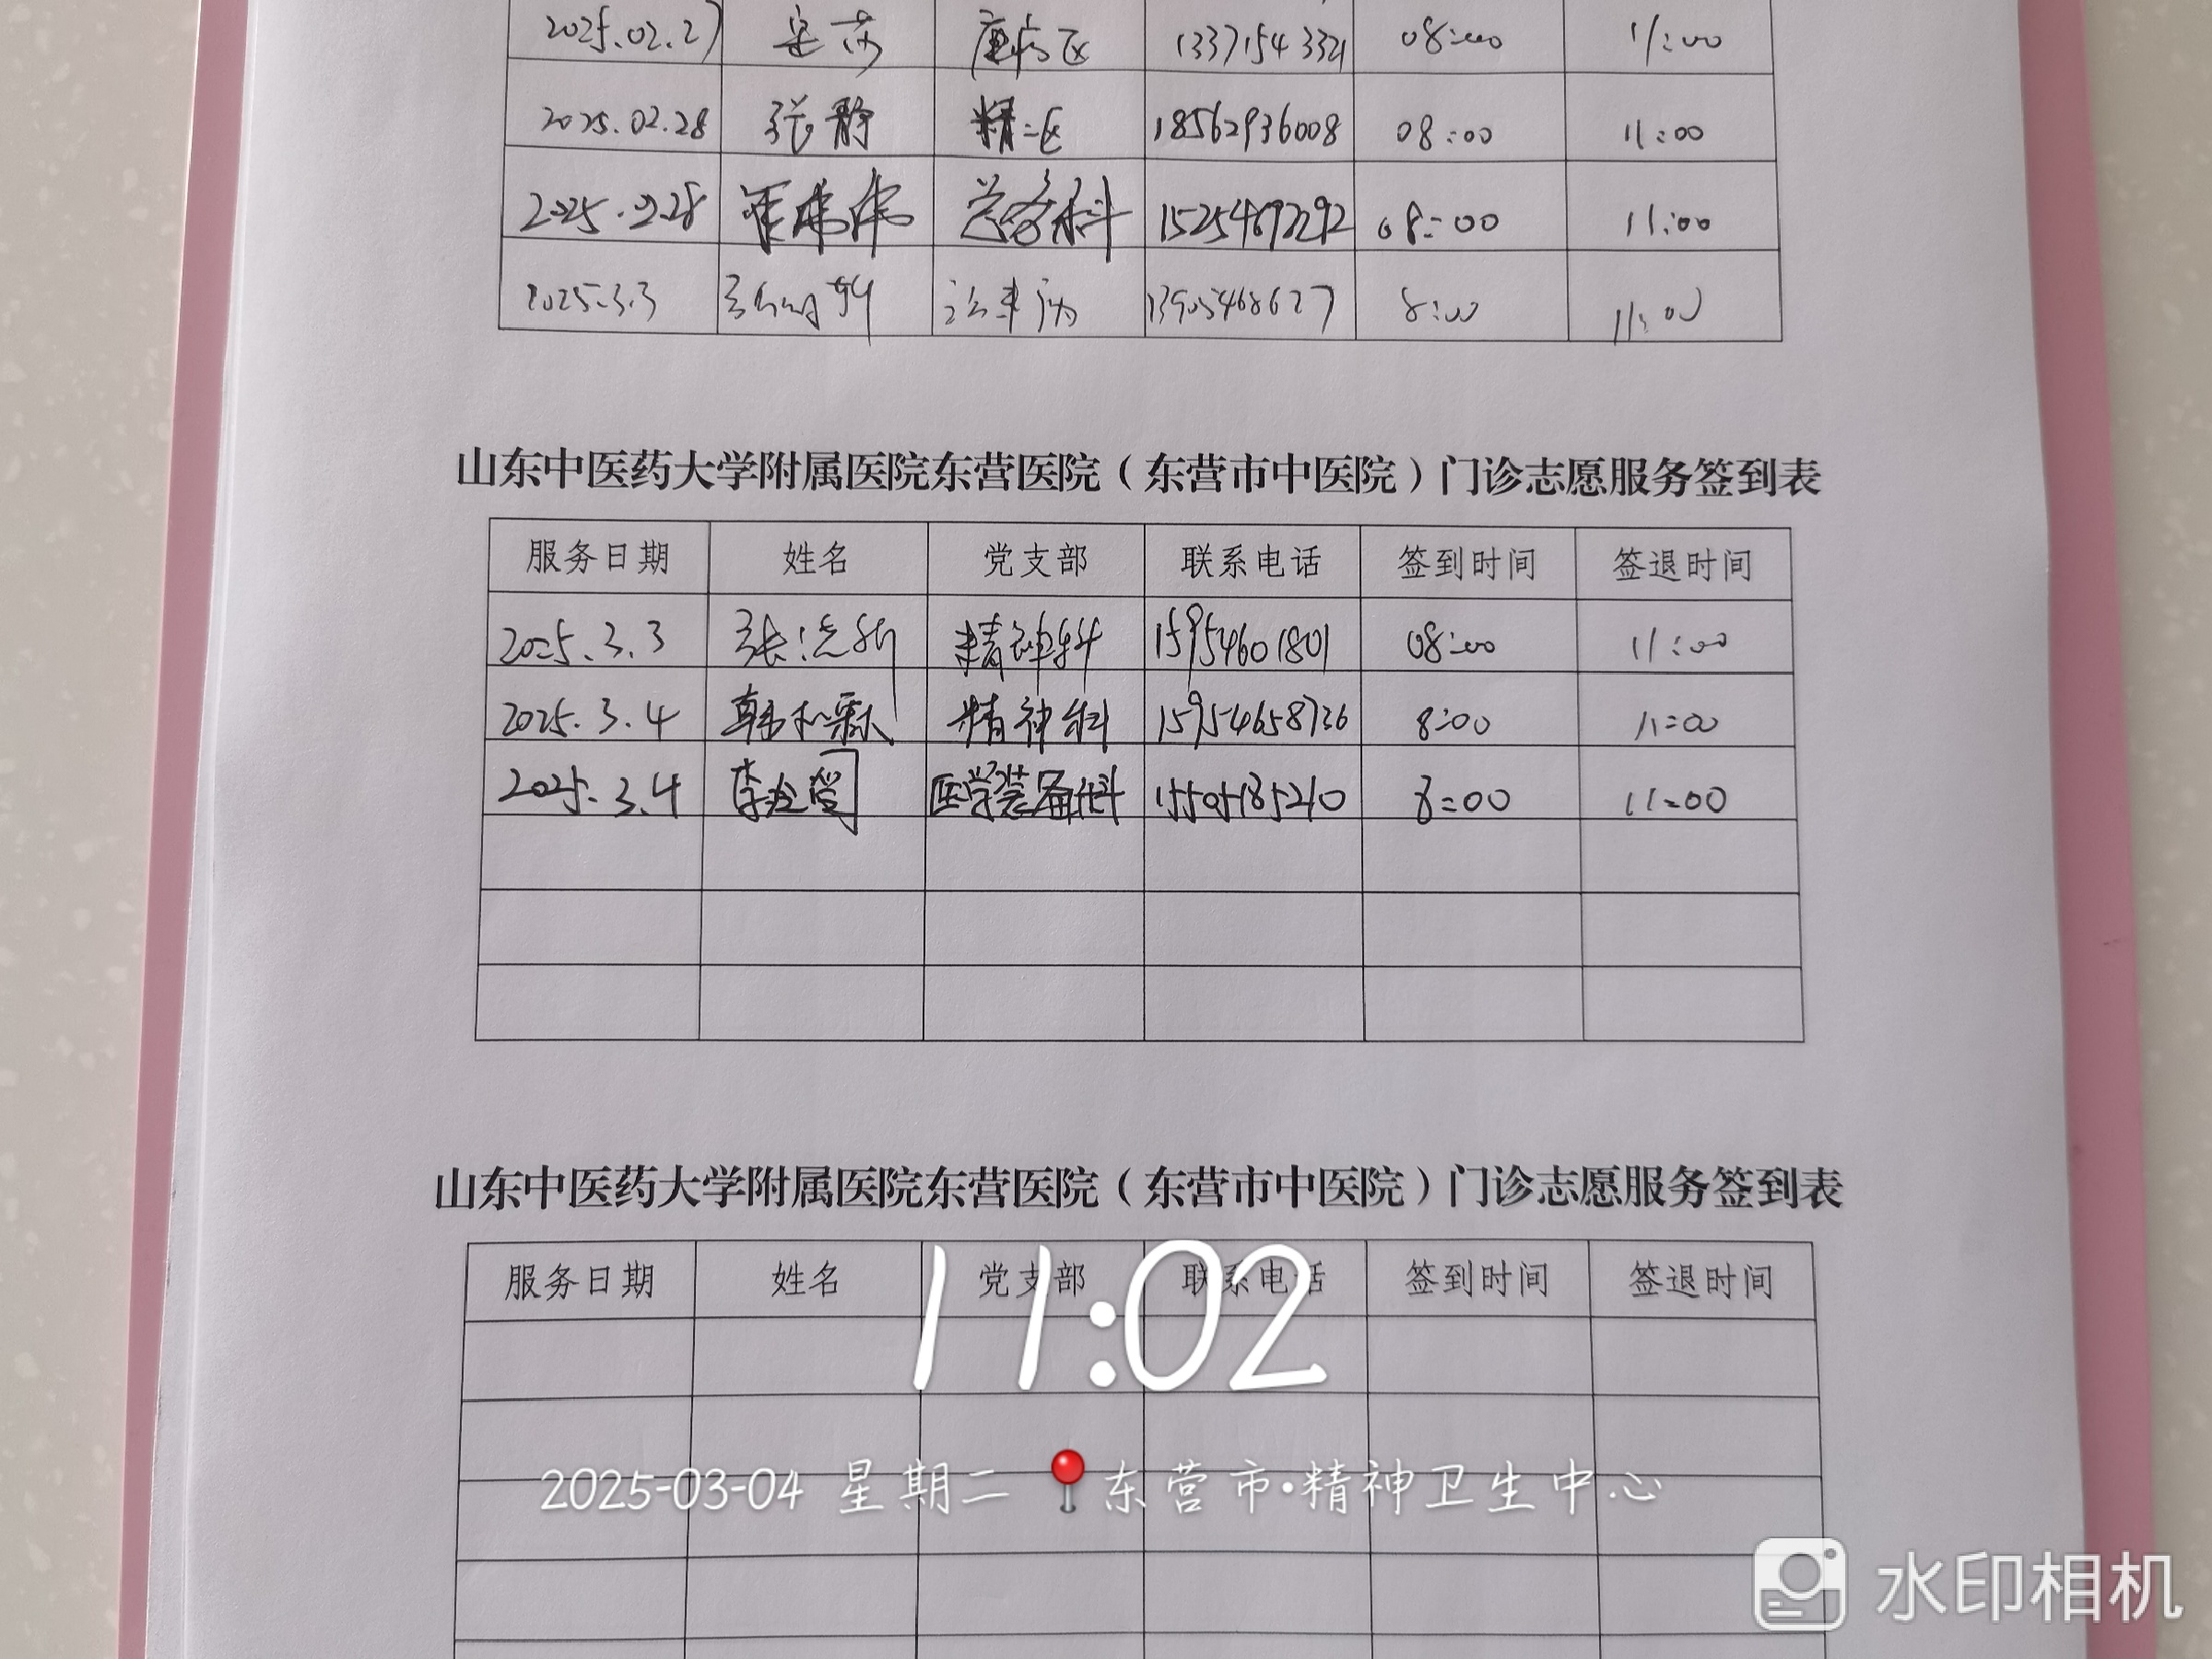 2025.02.27 13371543321 08:00 11:00
2025.02.28 张静 精二区 18562936008 08:00 11:00
2025.02.28 总务科 08:00 11:00
2025.3.3 13905468627 8:00 11:00
山东中医药大学附属医院东营医院（东营市中医院）门诊志愿服务签到表
服务日期 姓名 党支部 联系电话 签到时间 签退时间
2025.3.3 精神科 15954601801 08:00 11:00
2025.3.4 精神科 15954658736 8:00 11:00
2025.3.4 医学装备科 15505185210 8:00 11:00
山东中医药大学附属医院东营医院（东营市中医院）门诊志愿服务签到表
服务日期 姓名 党支部 联系电话 签到时间 签退时间
11:02
2025-03-04 星期二 东营市·精神卫生中心
水印相机